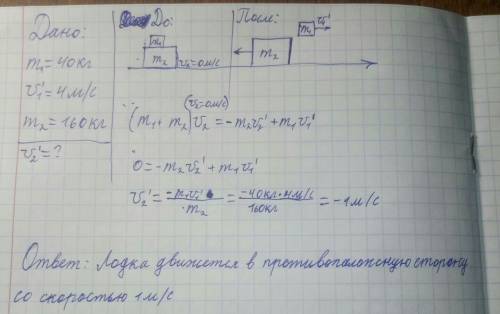 Дано:
m₁=40кг
v₁'=4м/с
m₂=160кг
v₂'=?
До:
m₁
m₂
v₂=0м/с
После:
m₂
m₁
v₁'
(v₂=0м/с)
(m₁+m₂)v₂=-m₂v₂'+m₁v₁'
0=-m₂v₂'+m₁v₁'
v₂'=-m₁v₁'/m₂=-40кг•4м/с/160кг=-1м/с
Ответ: Лодка движется в противоположную сторону
со скоростью 1м/с